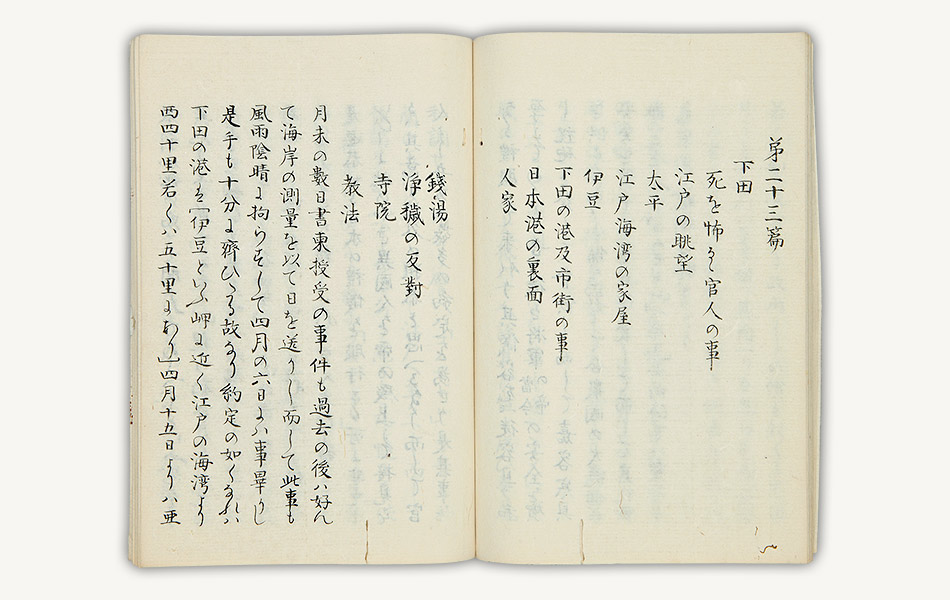 第二十三篇
下田
死を怖るゝ官人の事
江戸の眺望
太平
江戸海湾の家屋
伊豆
下田の港及市街の事
日本港の裏面
人家
錢湯
浄穢の反對
寺院
教法
月末の數日書柬授受の事件も過去の後ハ好ん
て海岸の測量を以て日を送りし而して此事も
風雨陰晴に拘らすして四月の六日よハ事畢りし
是手も十分に齊ひたる故なり約定の如くなれハ
下田の港を［伊豆といふ岬に近く江戸の海湾より
西四十里若くハ五十里にあり］四月十五日よりハ亜